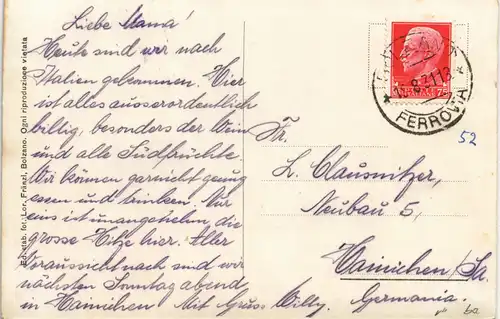 Liebe Mama!
Heute sind wir nach
Italien gekommen. Hier
ist alles ausserordentlich
billig, besonders der Wein
und alle Südfrüchte.
Wir können garnicht genug
essen und trinken. Nur
eins ist unangenehm, die
grosse Hitze hier. Aller
Voraussicht nach sind wir
nächsten Sonntag abend
in Hainichen. Mit Gruss Willy.
Fr.
L. Clausnitzer,
Neubau 5,
Hainichen, Sa.
Germania.
52
FERROVIA
Ed. stab. fot. Lor. Fränzl, Bolzano. Ogni riproduzione vietata